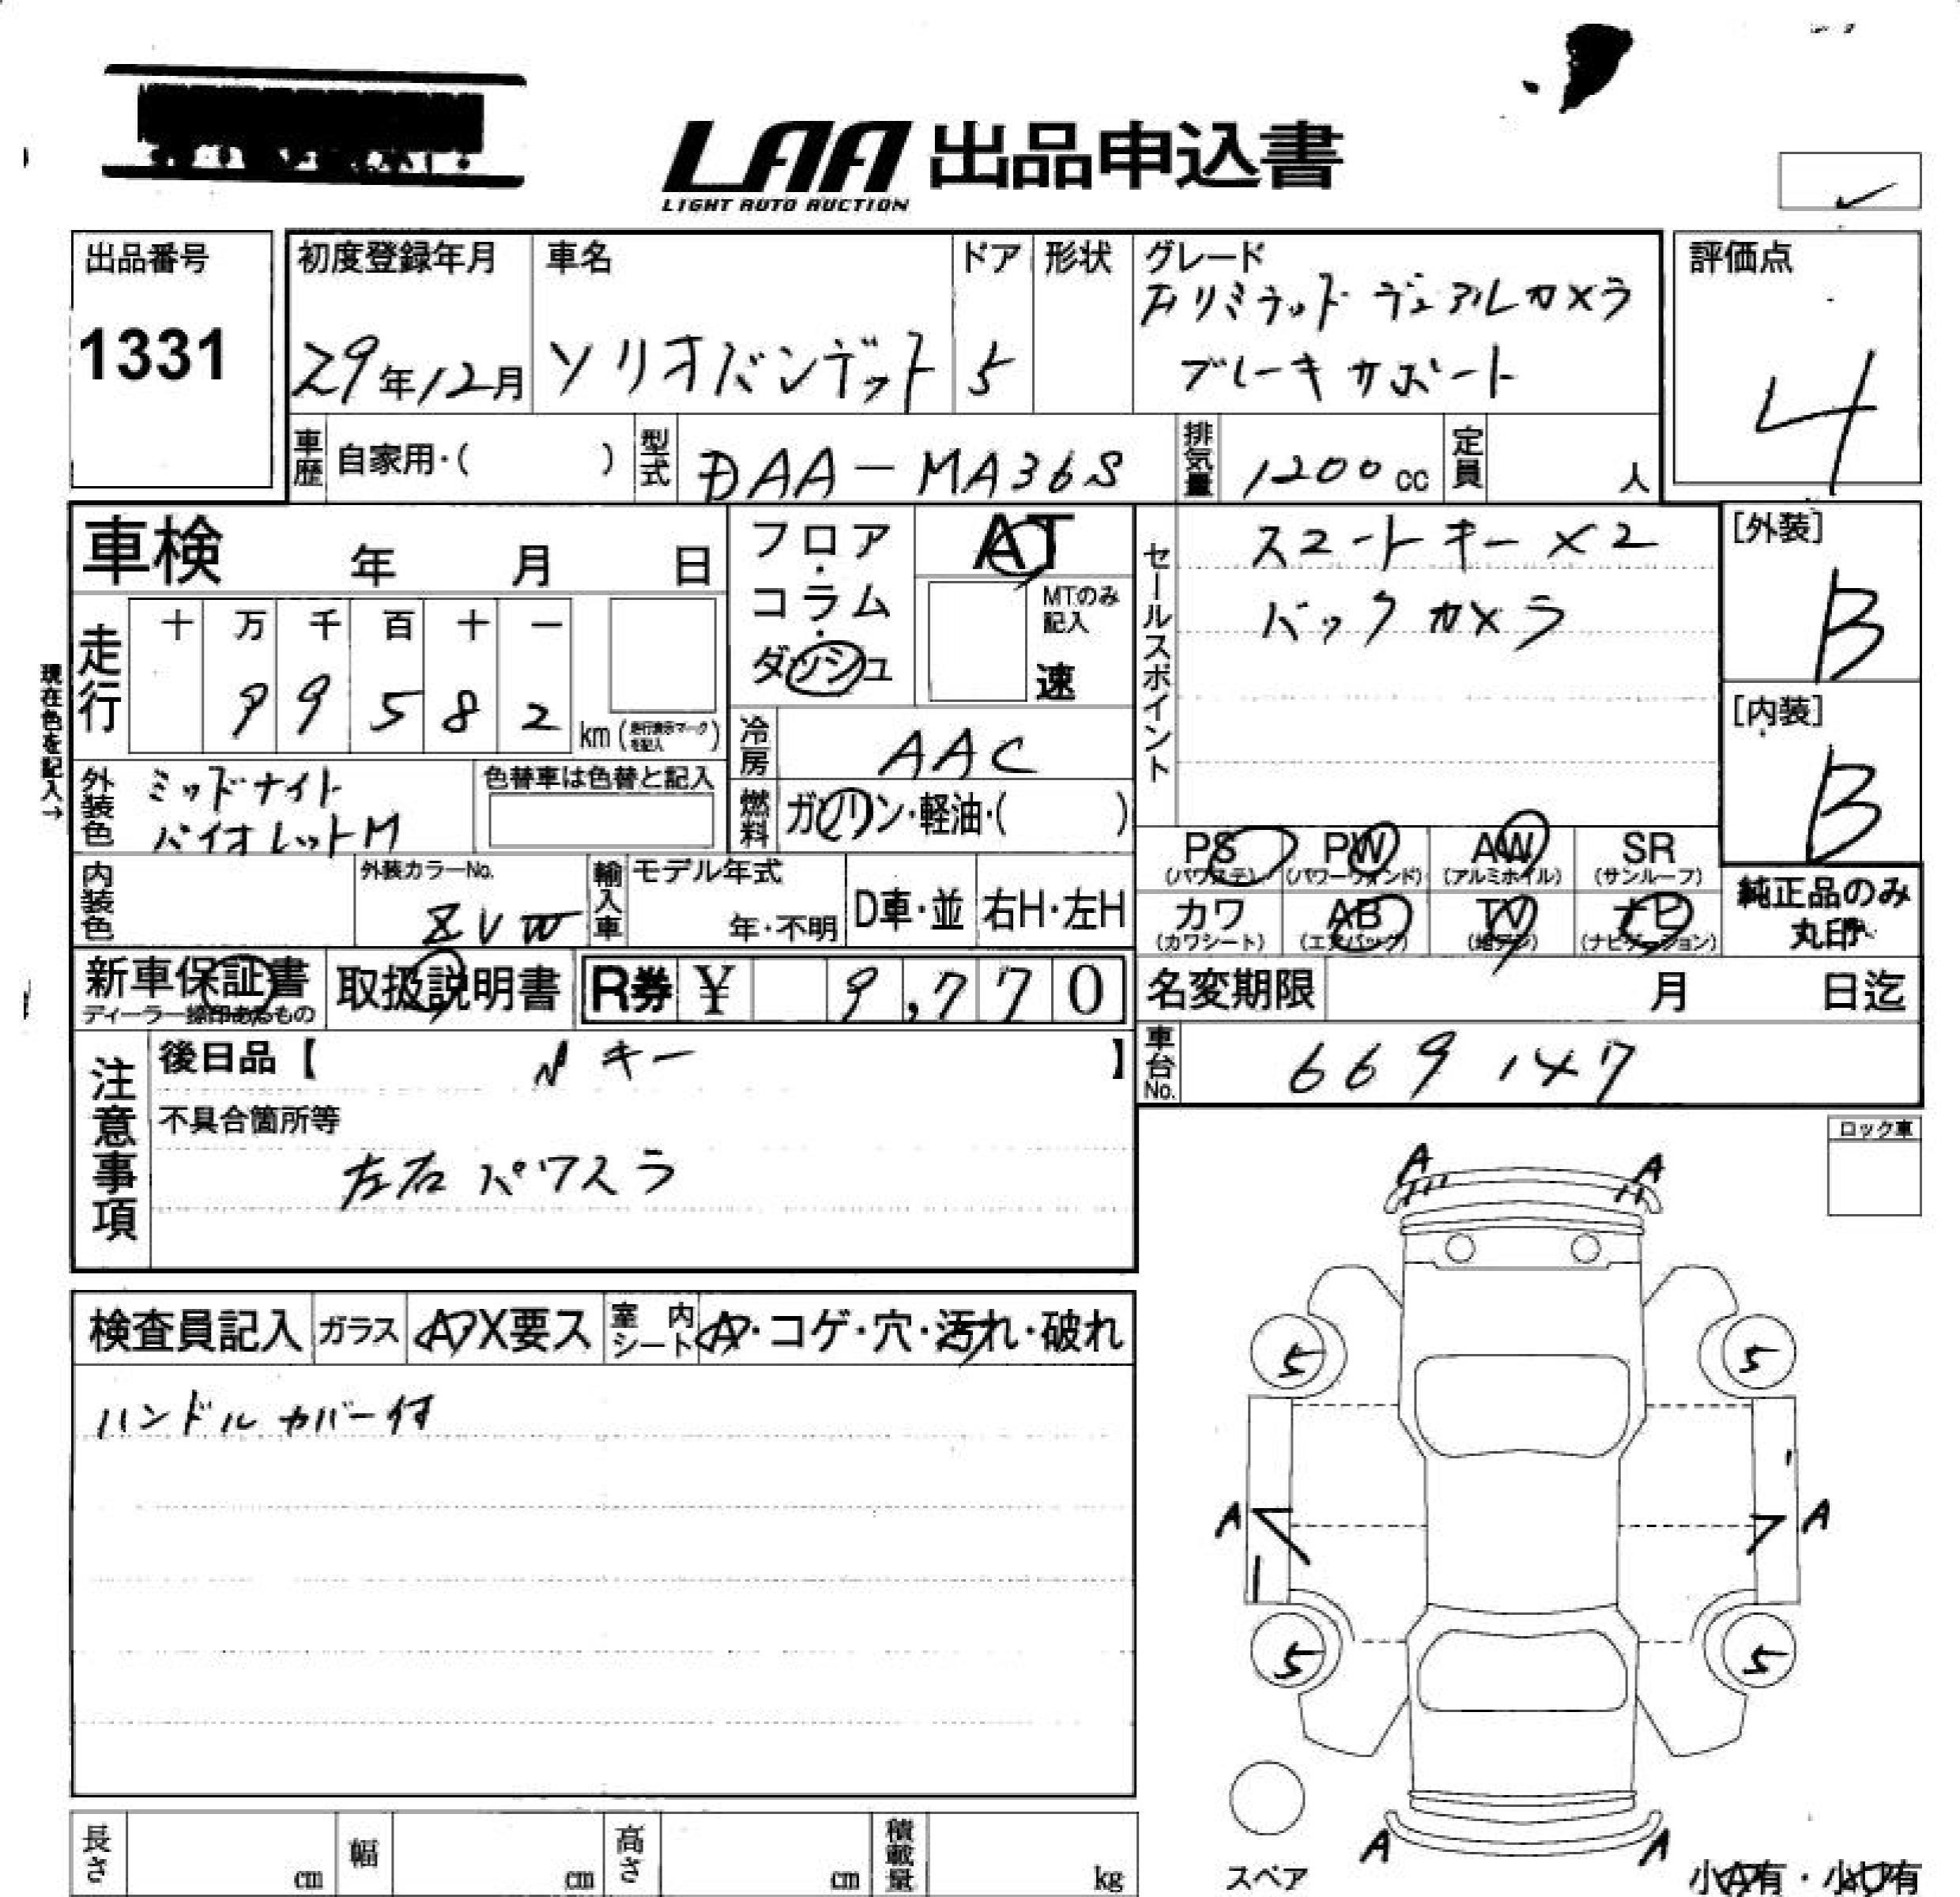 LAA 出品申込書
LIGHT AUTO AUCTION
出品番号
1331
初度登録年月
29年12月
車名
ソリオバンデット
ドア
5
形状
グレード
リミテッド デュアルカメラ
ブレーキサポート
評価点
4
車歴
自家用・( )
型式
DAA-MA36S
排気量
1200cc
定員
人
車検 年 月 日
フロア・コラム・ダッシュ
AT
MTのみ記入
速
セールスポイント
スマートキー×2
バックカメラ
[外装]
B
[内装]
B
現在色を記入→
走行
十 万 千 百 十 一
9 9 5 8 2
km (走行表示マークを記入)
冷房
AAC
外装色
ミッドナイト
バイオレットM
色替車は色替と記入
燃料
ガソリン・軽油・( )
PS (パワステ)
PW (パワーウィンド)
AW (アルミホイル)
SR (サンルーフ)
カワ (カワシート)
AB (エアバック)
TV (地デジ)
ナビ (ナビゲーション)
純正品のみ
丸印
内装色
外装カラーNo.
ZVW
輸入車
モデル年式
年・不明
D車・並
右H・左H
新車保証書
ディーラー捺印あるもの
取扱説明書
R券 ¥ 9,770
名変期限 月 日迄
車台No.
669147
注意事項
後日品【 Nキー 】
不具合箇所等
左右パワスラ
ロック車
A A
検査員記入
ガラス
A X要ス
室内シート
A・コゲ・穴・汚れ・破れ
ハンドルカバー付
5 5
A A
5 5
スペア
A A
小A有・小凹有
長さ cm
幅 cm
高さ cm
積載量 kg